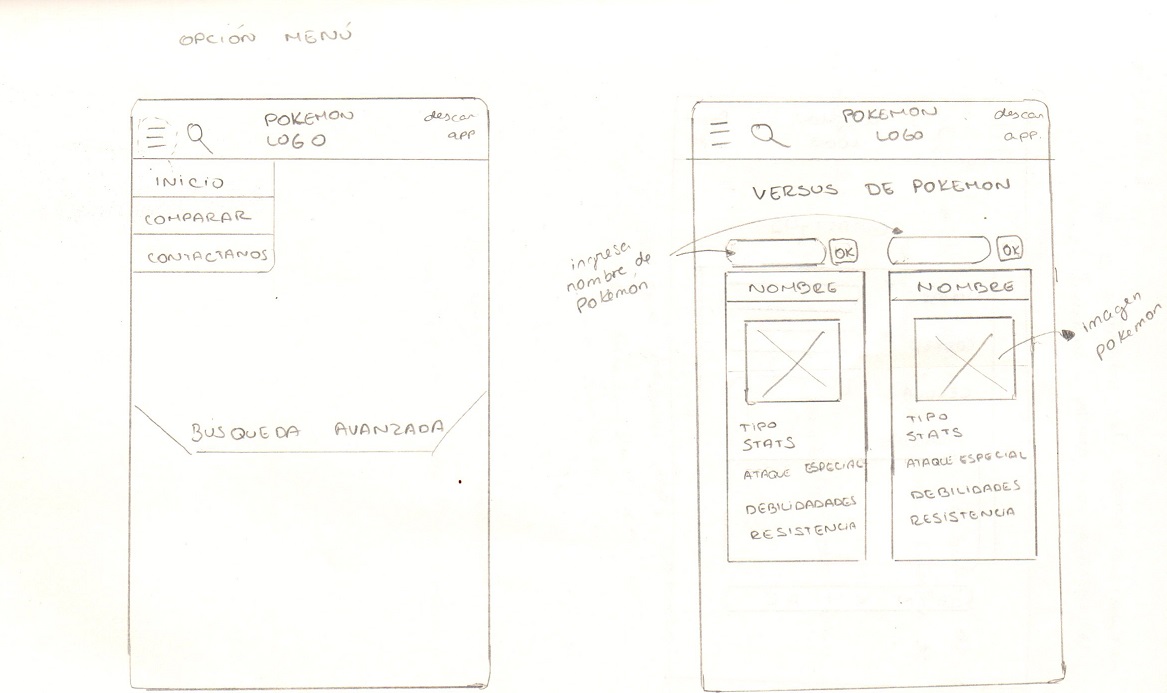 OPCIÓN MENÚ
POKEMON
LOGO
descar
app
INICIO
COMPARAR
CONTACTANOS
BÚSQUEDA AVANZADA
POKEMON
LOGO
descar
app.
VERSUS DE POKEMON
ingresa
nombre de
Pokémon
OK
OK
NOMBRE
TIPO
STATS
ATAQUE ESPECIAL
DEBILIDADADES
RESISTENCIA
NOMBRE
TIPO
STATS
ATAQUE ESPECIAL
DEBILIDADES
RESISTENCIA
imagen
pokemon